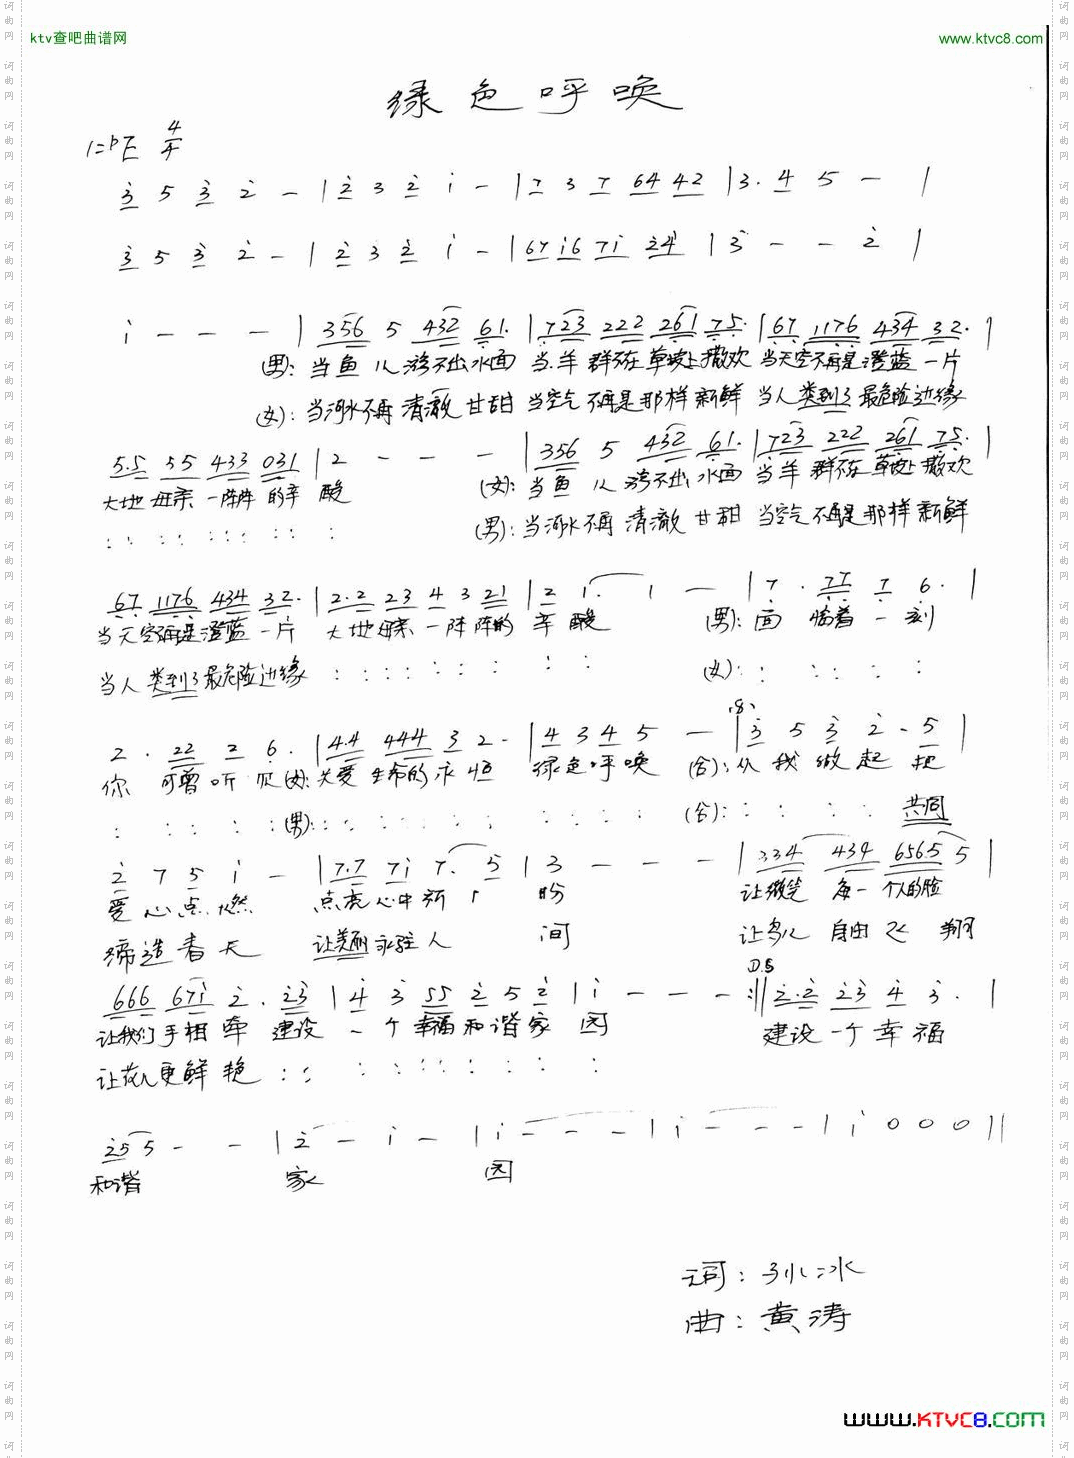 ktv查吧曲谱网 www.ktvc8.com
绿色呼唤
1=♭E 4/4
3 5 3 2 - | 2 3 2 i - | 7 3 7 64 42 | 3. 4 5 - |
3 5 3 2 - | 2 3 2 i - | 67 i6 7i 24 | 3 - - 2 |
i - - - | 356 5 432 61. | 723 222 261 75. | 67 1176 434 32. |
(男): 当鱼儿游不出水面 当羊群不在草坡上撒欢 当天空不再是澄蓝一片
(女): 当河水不再清澈甘甜 当空气不再是那样新鲜 当人类到了最危险边缘
5.5 55 433 031 | 2 - - - | 356 5 432 61. | 723 222 261 75. |
大地母亲一阵阵的辛酸 (女): 当鱼儿游不出水面 当羊群不在草坡上撒欢
: : : : : : : : : : (男): 当河水不再清澈甘甜 当空气不再是那样新鲜
67 1176 434 32. | 2.2 23 4 3 21 | 2 1. 1 - | 7. 77 7 6. |
当天空不再是澄蓝一片 大地母亲一阵阵的辛酸 (男): 面临着一刻
当人类到了最危险边缘 : : : : : : : : : (女): : : : : :
2. 22 2 6. | 4.4 444 3 2- | 4 3 4 5 - | 3 5 3 2. 5 |
你可曾听见 (女): 关爱生命的永恒 绿色呼唤 (合): 从我做起 把
: : : : : (男): : : : : : : : : : : : (合): : : : : 共同
2 7 5 i - | 7.7 7i 7. 5 | 3 - - - | 334 434 656.5 5 |
爱心点燃 点亮心中所有 盼 让微笑每一个人的脸
缔造春天 让美丽永驻人间 让鸟儿自由飞翔
D.S
666 67i 2. 23 | 4 3 55 2 5 2 | i - - - :|| 2.2 23 4 3. |
让我们手相牵 建设一个幸福和谐家园 建设一个幸福
让花儿更鲜艳 : : : : : : : : : :
255 - - | 2 - i - | i - - - | i - - - | i 0 0 0 ||
和谐 家 园
词: 孙冰
曲: 黄涛
www.KTVC8.com